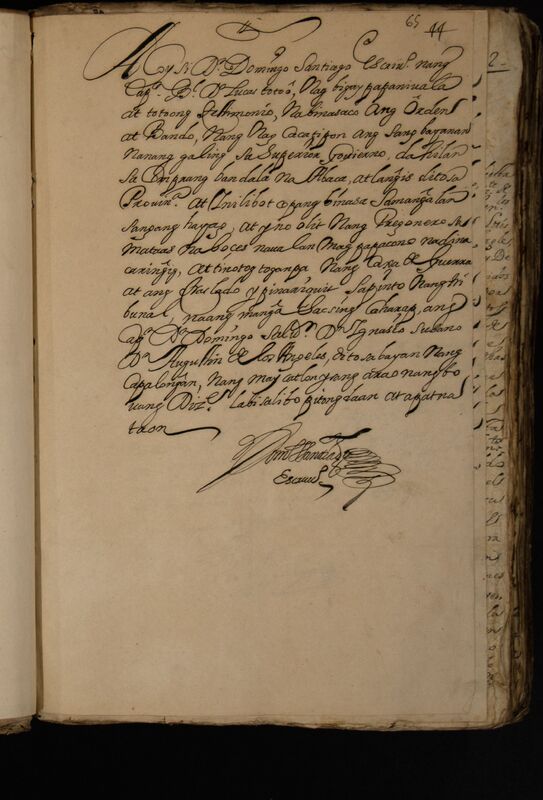 65 44
Acy Dn Domingo Santiago Escrivno nang
Capn Dn Lucas totoó, Nag bigay papaniuala
at totoong Testimonio, Na binasaco Ang Orden
at Bando, Nang Nag Cacatipon ang sang bayanan
Nanang galing Sa Superior Govierno, dahilan
sa bandala Na Abaca, at langis dito sa
Provina. At Inilibot copang binasa Samanga lan
sangang hayag, at ynolit Nang Pregonero sa
mataas Na boces naualan mag papacono nadina
caringig, at tinotogtogan pa Nang Caxa de Guerra
at ang traslado y pinarayquit Sapinto Nang tri
bunal, naang manga Sacsing Caharap, ang
Capn Dn Domingo Saldn Dn Ignasio Subano
Dn Augustin de los Angeles, dito sa bayan Nang
Capalongan, Nang may catlong arao nang bo
uang Dize. Labi sa libo pitong daan at apat na
taon
Domo Santiago
Escrivno